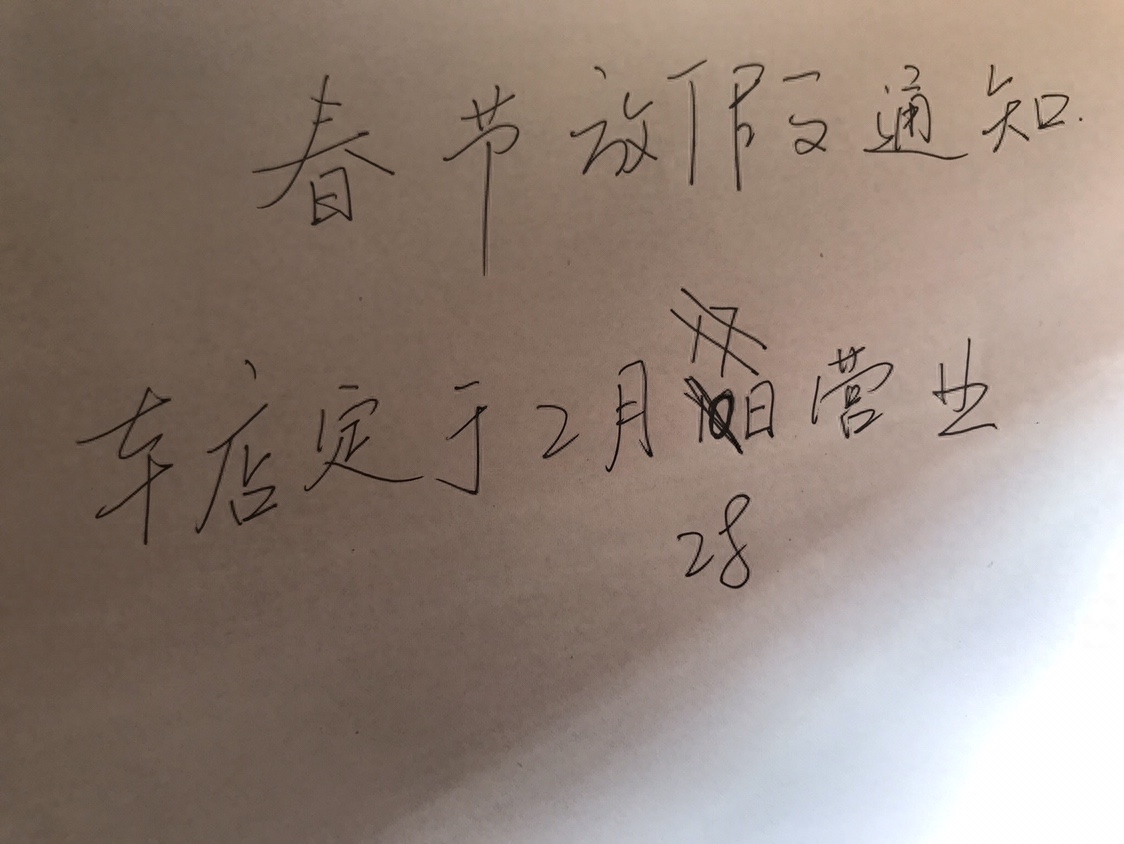 春节放假通知
车店定于2月日营业
28